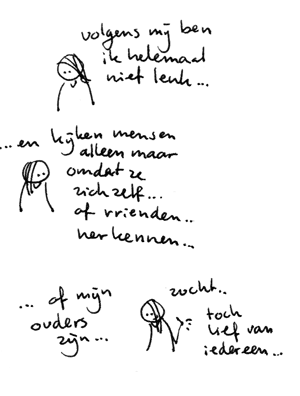 volgens mij ben
ik helemaal
niet leuk...
...en kijken mensen
alleen maar
omdat ze
zichzelf...
of vrienden..
herkennen...
... of mijn
ouders
zijn...
zucht..
toch
lief van
iedereen...